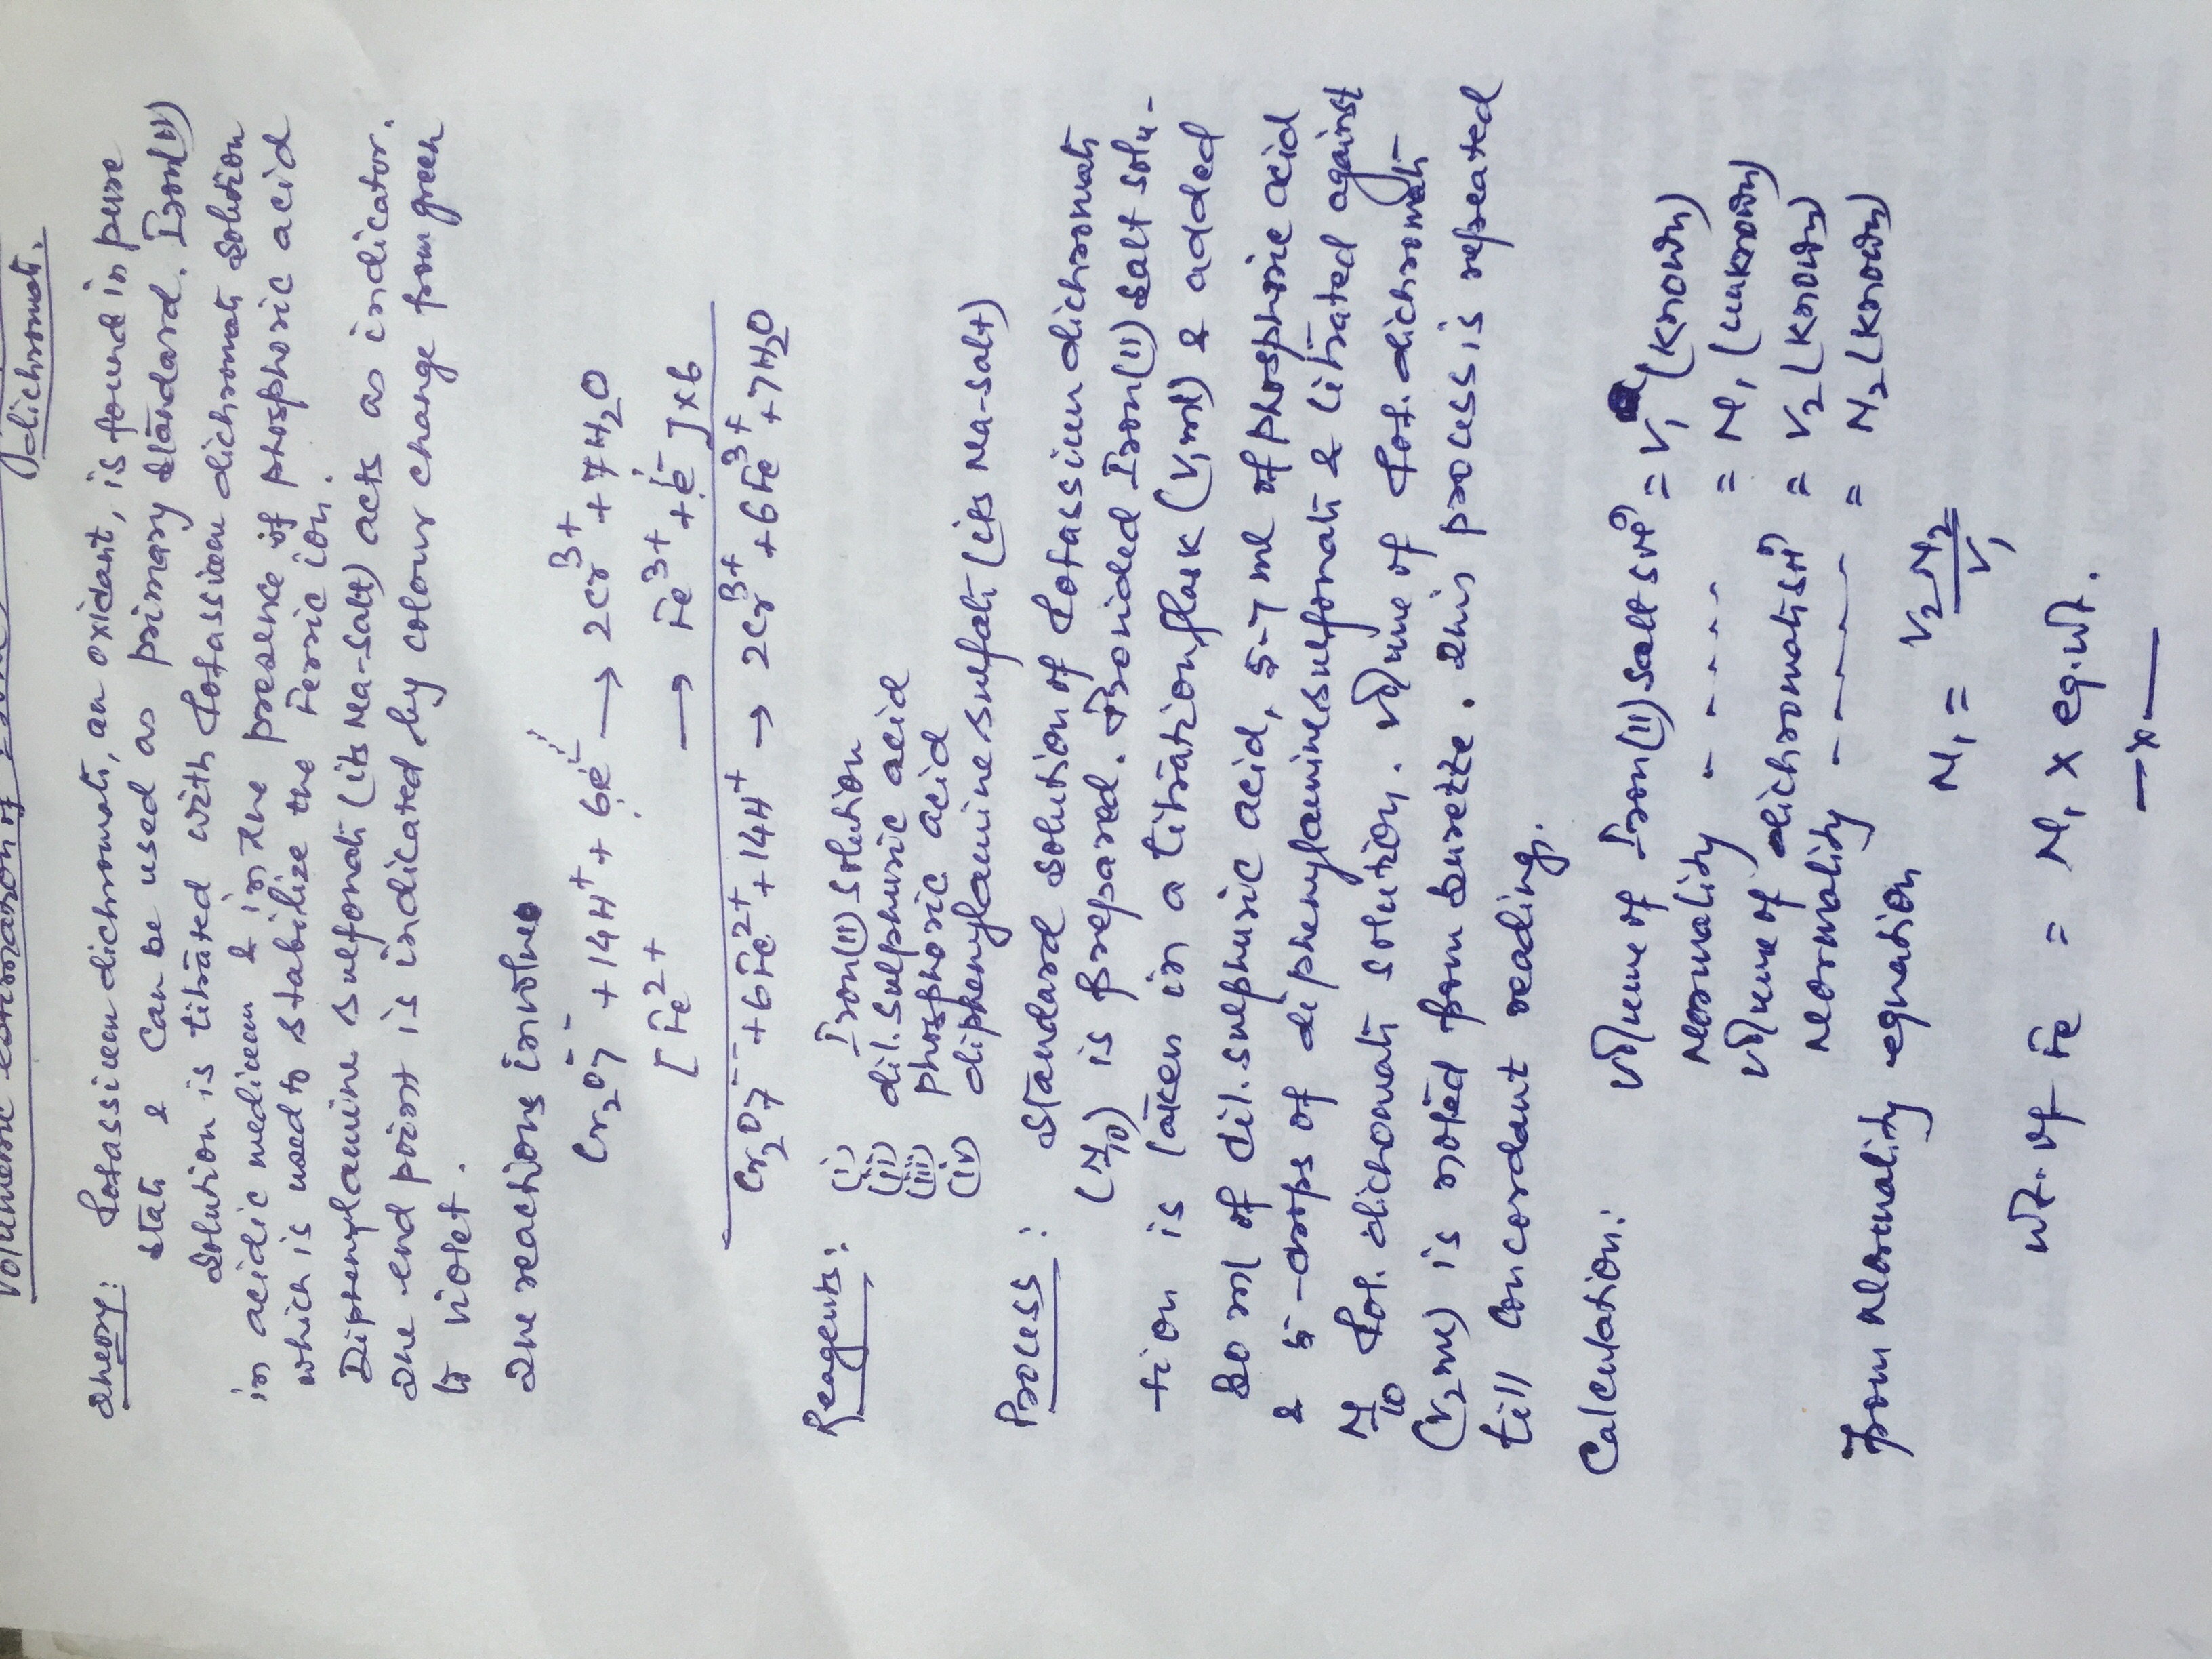 Volumetric estimation of Iron
dichromate.
Theory: Potassium dichromate, an oxidant, is found in pure
state & can be used as primary standard. Iron(II)
solution is titrated with Potassium dichromate solution
in acidic medium & in the presence of phosphoric acid
which is used to stabilize the Ferric ion.
Diphenylamine sulfonate (its Na-salt) acts as indicator.
The end point is indicated by colour change from green
to violet.
The reactions involve
Cr₂O₇⁻⁻ + 14H⁺ + 6e⁻ → 2Cr³⁺ + 7H₂O
[Fe²⁺ → Fe³⁺ + e⁻] x 6
Cr₂O₇⁻⁻ + 6Fe²⁺ + 14H⁺ → 2Cr³⁺ + 6Fe³⁺ + 7H₂O
Reagents: (i) Iron(II) solution
(ii) dil. sulphuric acid
(iii) phosphoric acid
(iv) diphenylamine sulfate (its Na-salt)
Process: Standard solution of Potassium dichromate
(N/10) is prepared. Provided Iron(II) salt solu-
tion is taken in a titration flask (V₁ ml) & added
20 ml of dil. sulphuric acid, 5-7 ml of phosphoric acid
& 5-drops of diphenylamine sulfonate & titrated against
N/10 Pot. dichromate solution. Volume of Pot. dichromate
(V₂ ml) is noted from burette. This process is repeated
till concordant reading.
Calculation: Volume of Iron(II) salt solⁿ = V₁ (known)
Normality - - - - - = N₁ (unknown)
Volume of dichromate solⁿ = V₂ (known)
Normality - - - - - = N₂ (known)
From Normality equation N₁ = V₂N₂/V₁
wt. of Fe = N₁ x eq. wt.
—x—